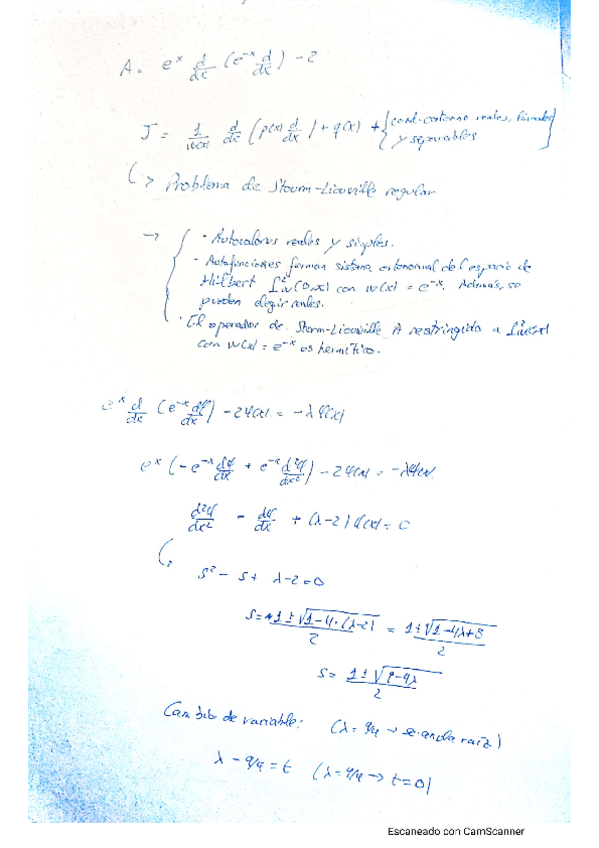 A = e^x d/dx (e^-x d/dx) - 2
J = 1/w(x) d/dx (p(x) d/dx) + q(x) + {cond. contorno reales,
y separables}
↳ Problema de Sturm-Liouville regular
→ { · Autovalores reales y simples.
· Autofunciones forman sistema ortonormal del espacio de
Hilbert L²w con w(x) = e^-x. Además, se
pueden elegir reales.
· El operador de Storm-Liouville A restringido a
con w(x) = e^-x es hermítico.
e^x d/dx (e^-x dφ/dx) - 2φ(x) = -λφ(x)
e^x (-e^-x dφ/dx + e^-x d²φ/dx²) - 2φ(x) = -λφ(x)
d²φ/dx² - dφ/dx + (λ-2)φ(x) = 0
↳
s² - s + λ - 2 = 0
s = +1 ± √(1-4·(λ-2)) / 2 = 1 ± √(1-4λ+8) / 2
s = 1 ± √(9-4λ) / 2
Cambio de variable: (λ = 9/4 → se anula raíz)
λ - 9/4 = t (λ = 9/4 → t = 0)
Escaneado con CamScanner